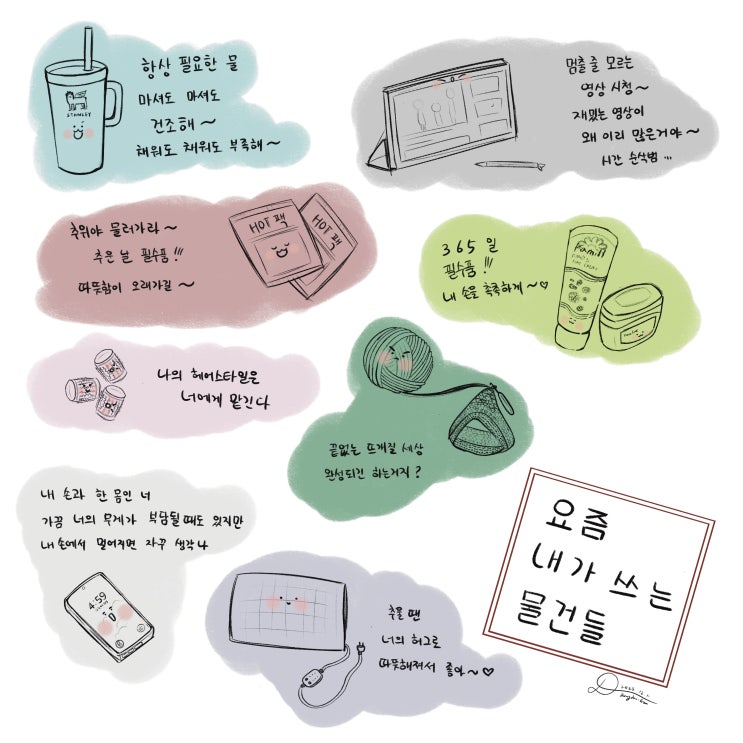 항상 필요한 물
마셔도 마셔도
건조해~
채워도 채워도 부족해~
STANLEY
멈출 줄 모르는
영상 시청~
재밌는 영상이
왜 이리 많은거야~
시간 순삭범...
추위야 물러가라~
추운 날 필수품!!!
따뜻함이 오래가길~
HOT 팩
HOT 팩
365일
필수품!!!
내 손을 촉촉하게~♡
Kamill
나의 헤어스타일은
너에게 맡긴다
끝없는 뜨개질 세상
완성되긴 하는거지?
내 손과 한 몸인 너
가끔 너의 무게가 부담될 때도 있지만
내 손에서 멀어지면 자꾸 생각나
4:59
추울 땐
너의 허그로
따뜻해져서 좋아~♡
요즘
내가 쓰는
물건들